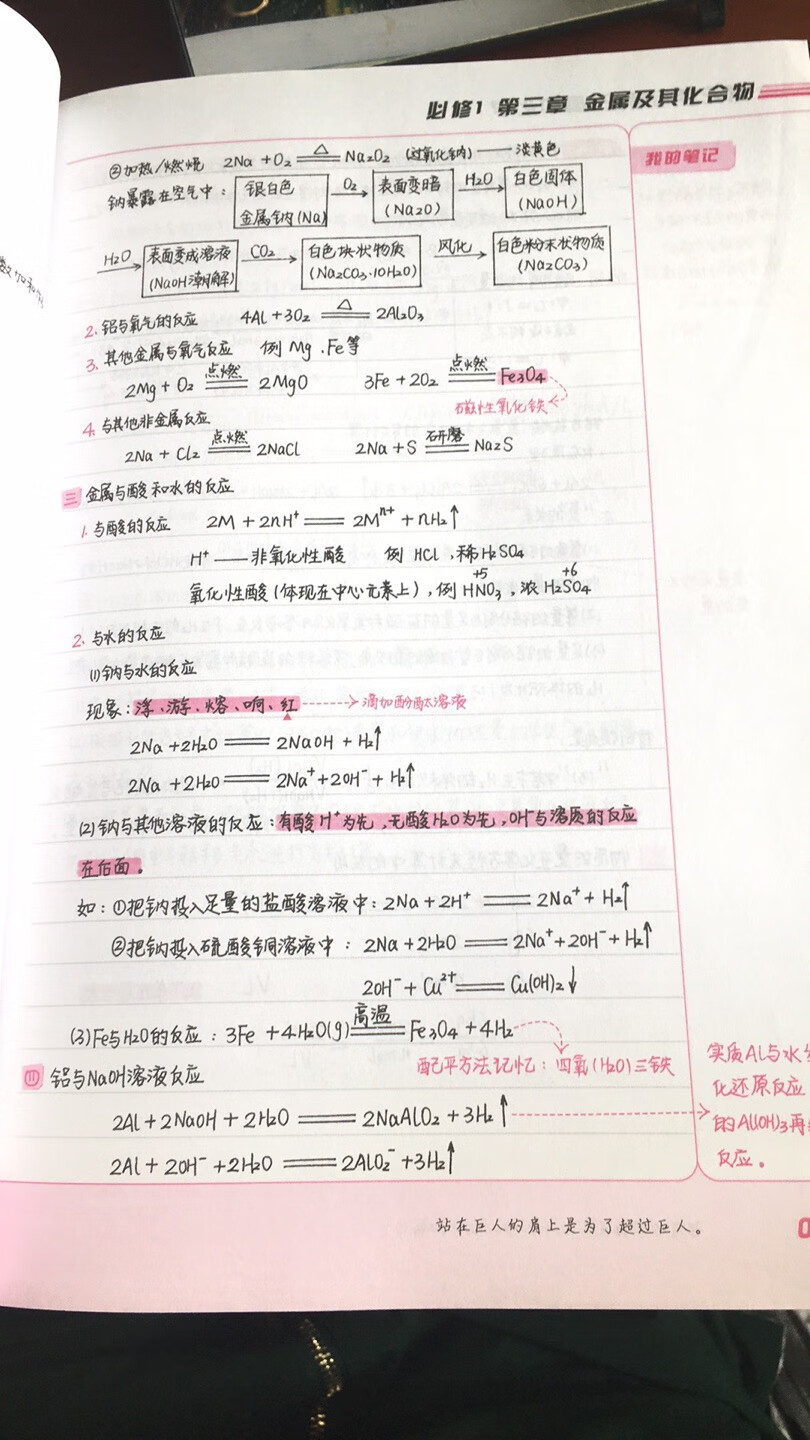 必修1 第三章 金属及其化合物
我的笔记
②加热/燃烧 2Na + O2 ══△══ Na2O2 (过氧化钠) —— 淡黄色
钠暴露在空气中: 银白色金属钠(Na) —O2→ 表面变暗(Na2O) —H2O→ 白色固体(NaOH)
—H2O→ 表面变成溶液(NaOH潮解) —CO2→ 白色块状物质(Na2CO3·10H2O) —风化→ 白色粉末状物质(Na2CO3)
2. 铝与氧气的反应 4Al + 3O2 ══△══ 2Al2O3
3. 其他金属与氧气反应 例 Mg、Fe等
2Mg + O2 ══点燃══ 2MgO 3Fe + 2O2 ══点燃══ Fe3O4
磁性氧化铁
4. 与其他非金属反应
2Na + Cl2 ══点燃══ 2NaCl 2Na + S ══研磨══ Na2S
三 金属与酸和水的反应
1. 与酸的反应 2M + 2nH⁺ ══ 2Mⁿ⁺ + nH2↑
H⁺ —— 非氧化性酸 例 HCl,稀H2SO4
氧化性酸(体现在中心元素上),例HNO3,浓H2SO4
+5 +6
2. 与水的反应
(1)钠与水的反应
现象:浮、游、熔、响、红 → 滴加酚酞溶液
2Na + 2H2O ══ 2NaOH + H2↑
2Na + 2H2O ══ 2Na⁺ + 2OH⁻ + H2↑
(2)钠与其他溶液的反应:有酸H⁺为先,无酸H2O为先,OH⁻与溶质的反应
在后面。
如:①把钠投入足量的盐酸溶液中:2Na + 2H⁺ ══ 2Na⁺ + H2↑
②把钠投入硫酸铜溶液中:2Na + 2H2O ══ 2Na⁺ + 2OH⁻ + H2↑
2OH⁻ + Cu²⁺ ══ Cu(OH)2↓
(3)Fe与H2O的反应:3Fe + 4H2O(g) ══高温══ Fe3O4 + 4H2
配平方法记忆:四氧(H2O)三铁
四 铝与NaOH溶液反应
2Al + 2NaOH + 2H2O ══ 2NaAlO2 + 3H2↑
2Al + 2OH⁻ + 2H2O ══ 2AlO2⁻ + 3H2↑
实质Al与水
化还原反应
的Al(OH)3再
反应。
站在巨人的肩上是为了超过巨人。